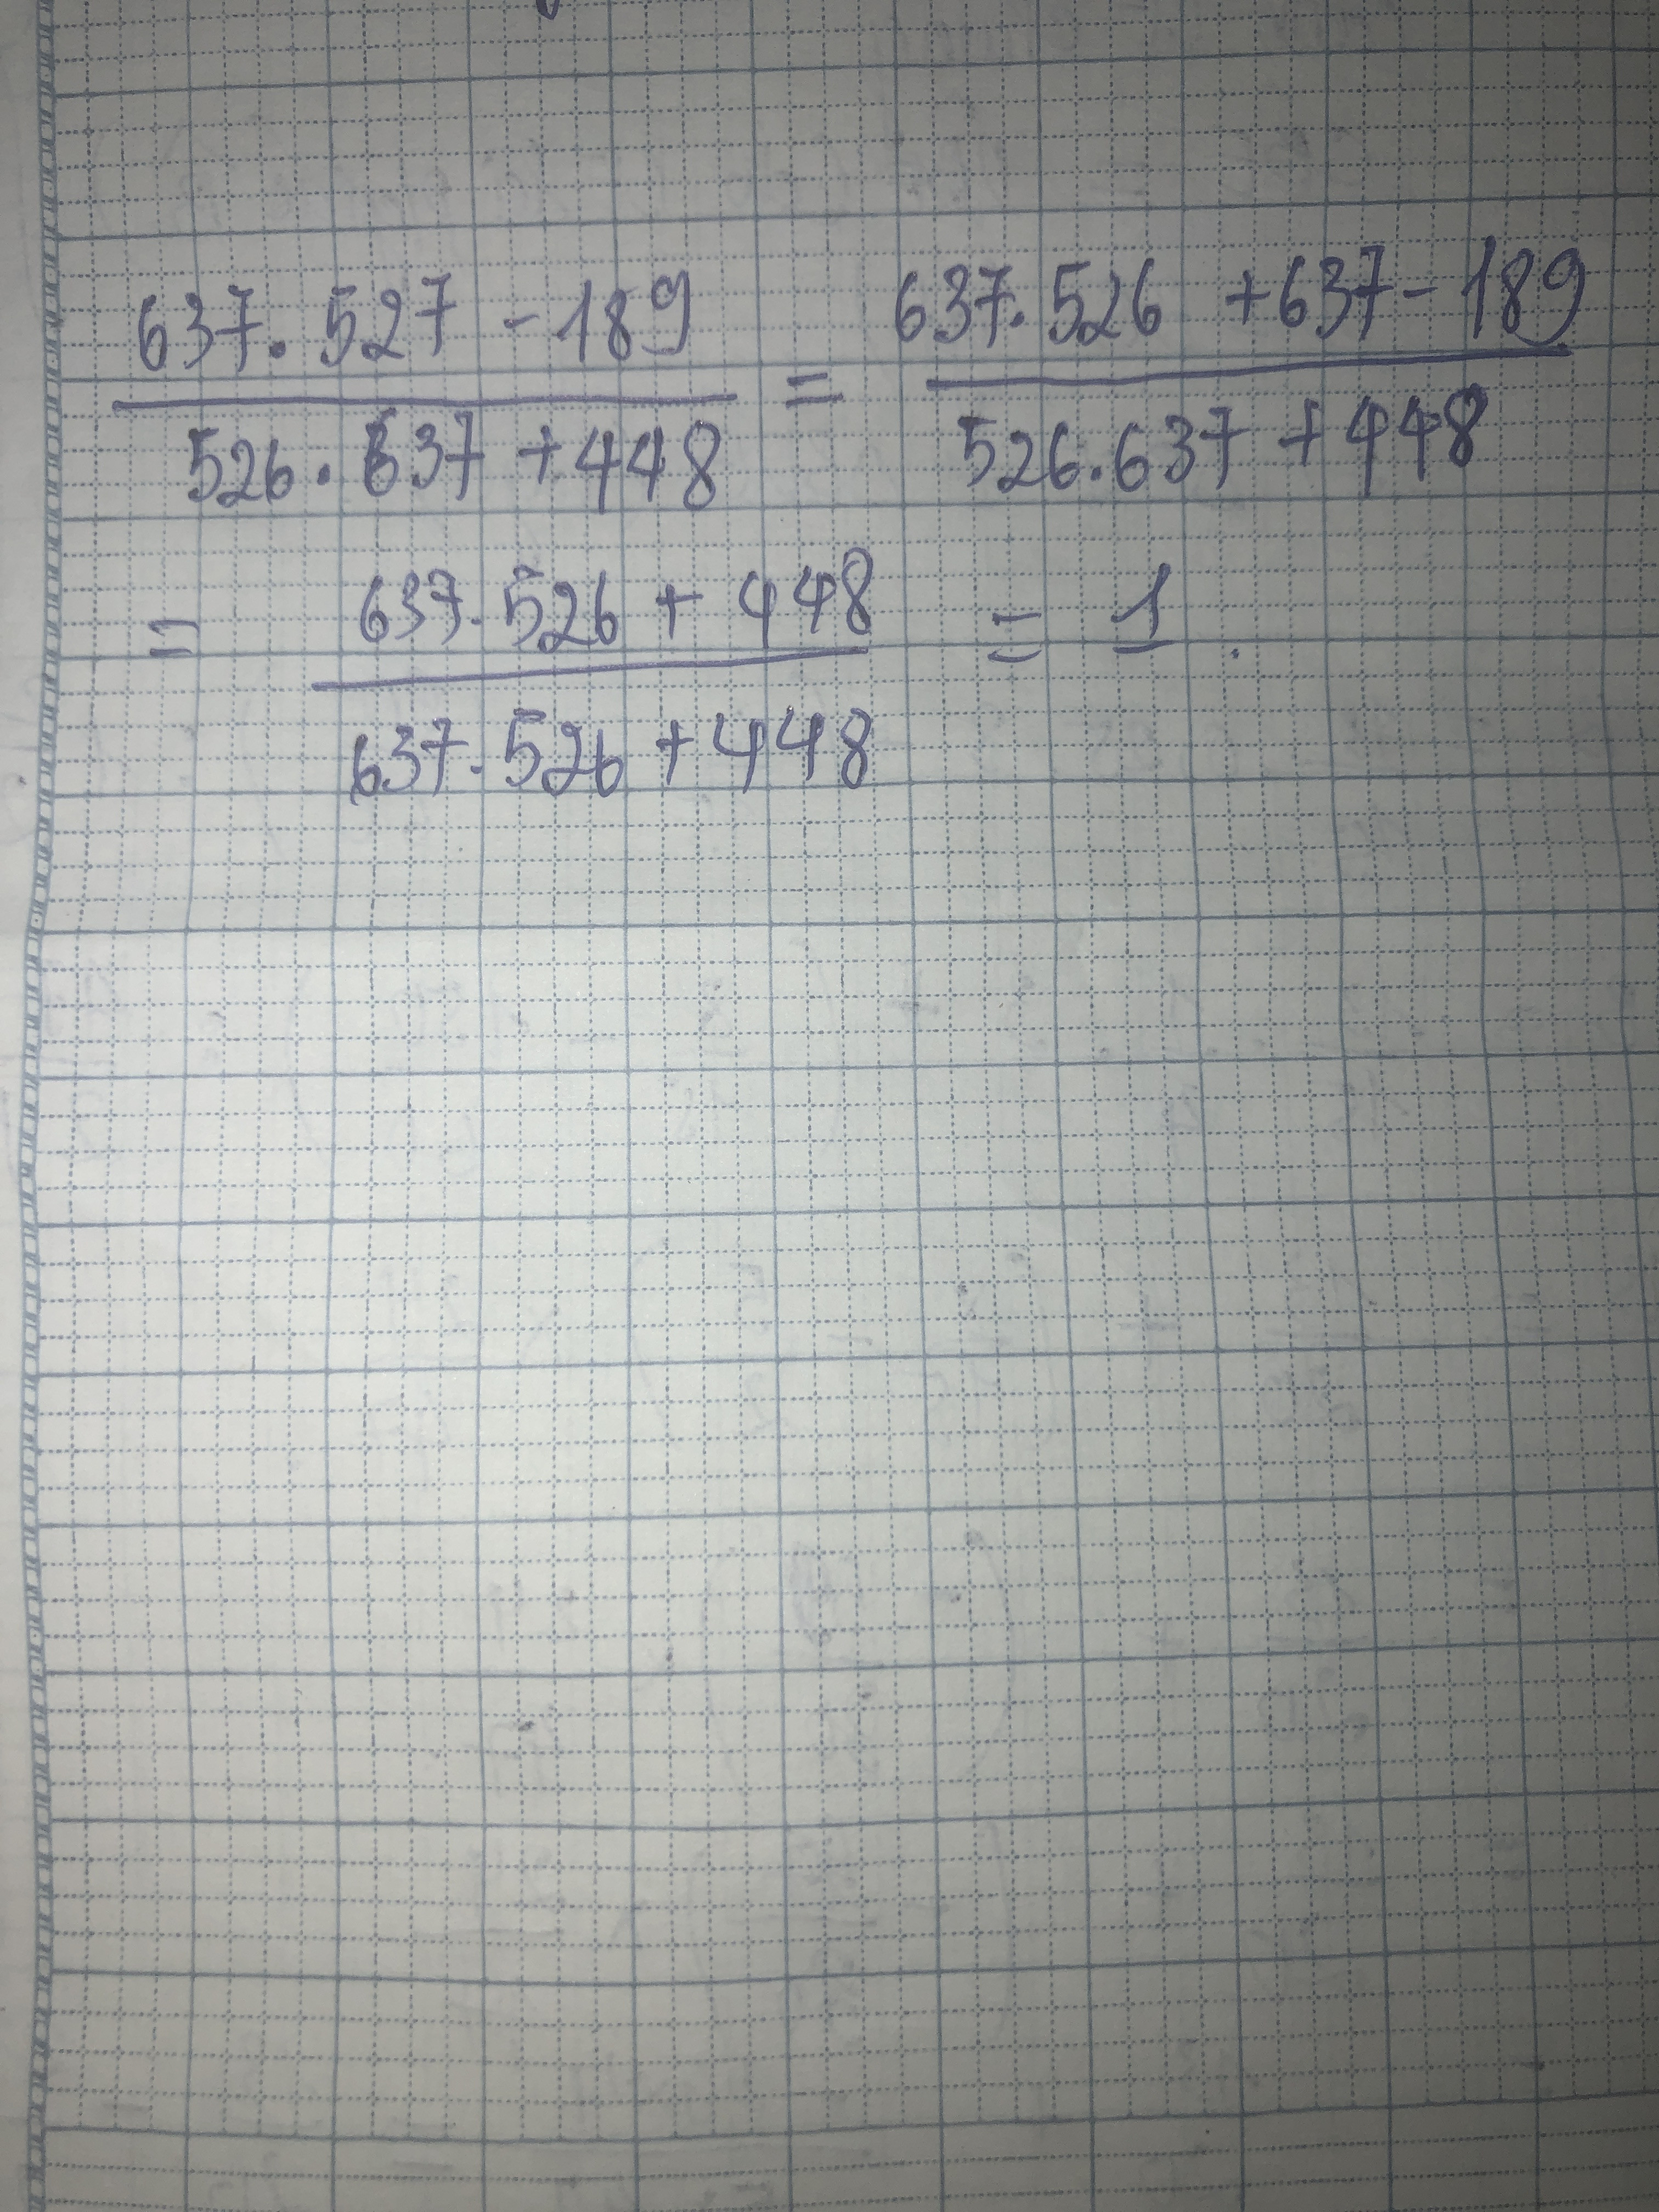 637.527 - 189 / 526.637 + 448 = 637.526 + 637 - 189 / 526.637 + 448
= 637.526 + 448 / 637.526 + 448 = 1.